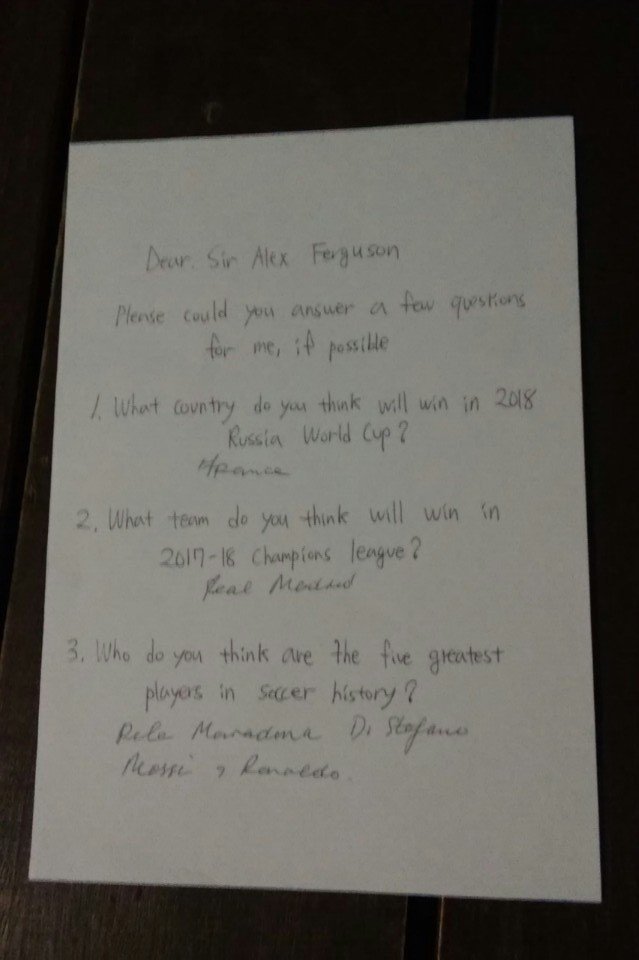 Dear. Sir Alex Ferguson
Please could you answer a few questions
for me, if possible
1. What country do you think will win in 2018
Russia World Cup?
France
2. What team do you think will win in
2017-18 Champions league?
Real Madrid
3. Who do you think are the five greatest
players in soccer history?
Pele Maradona Di Stefano
Messi & Ronaldo.